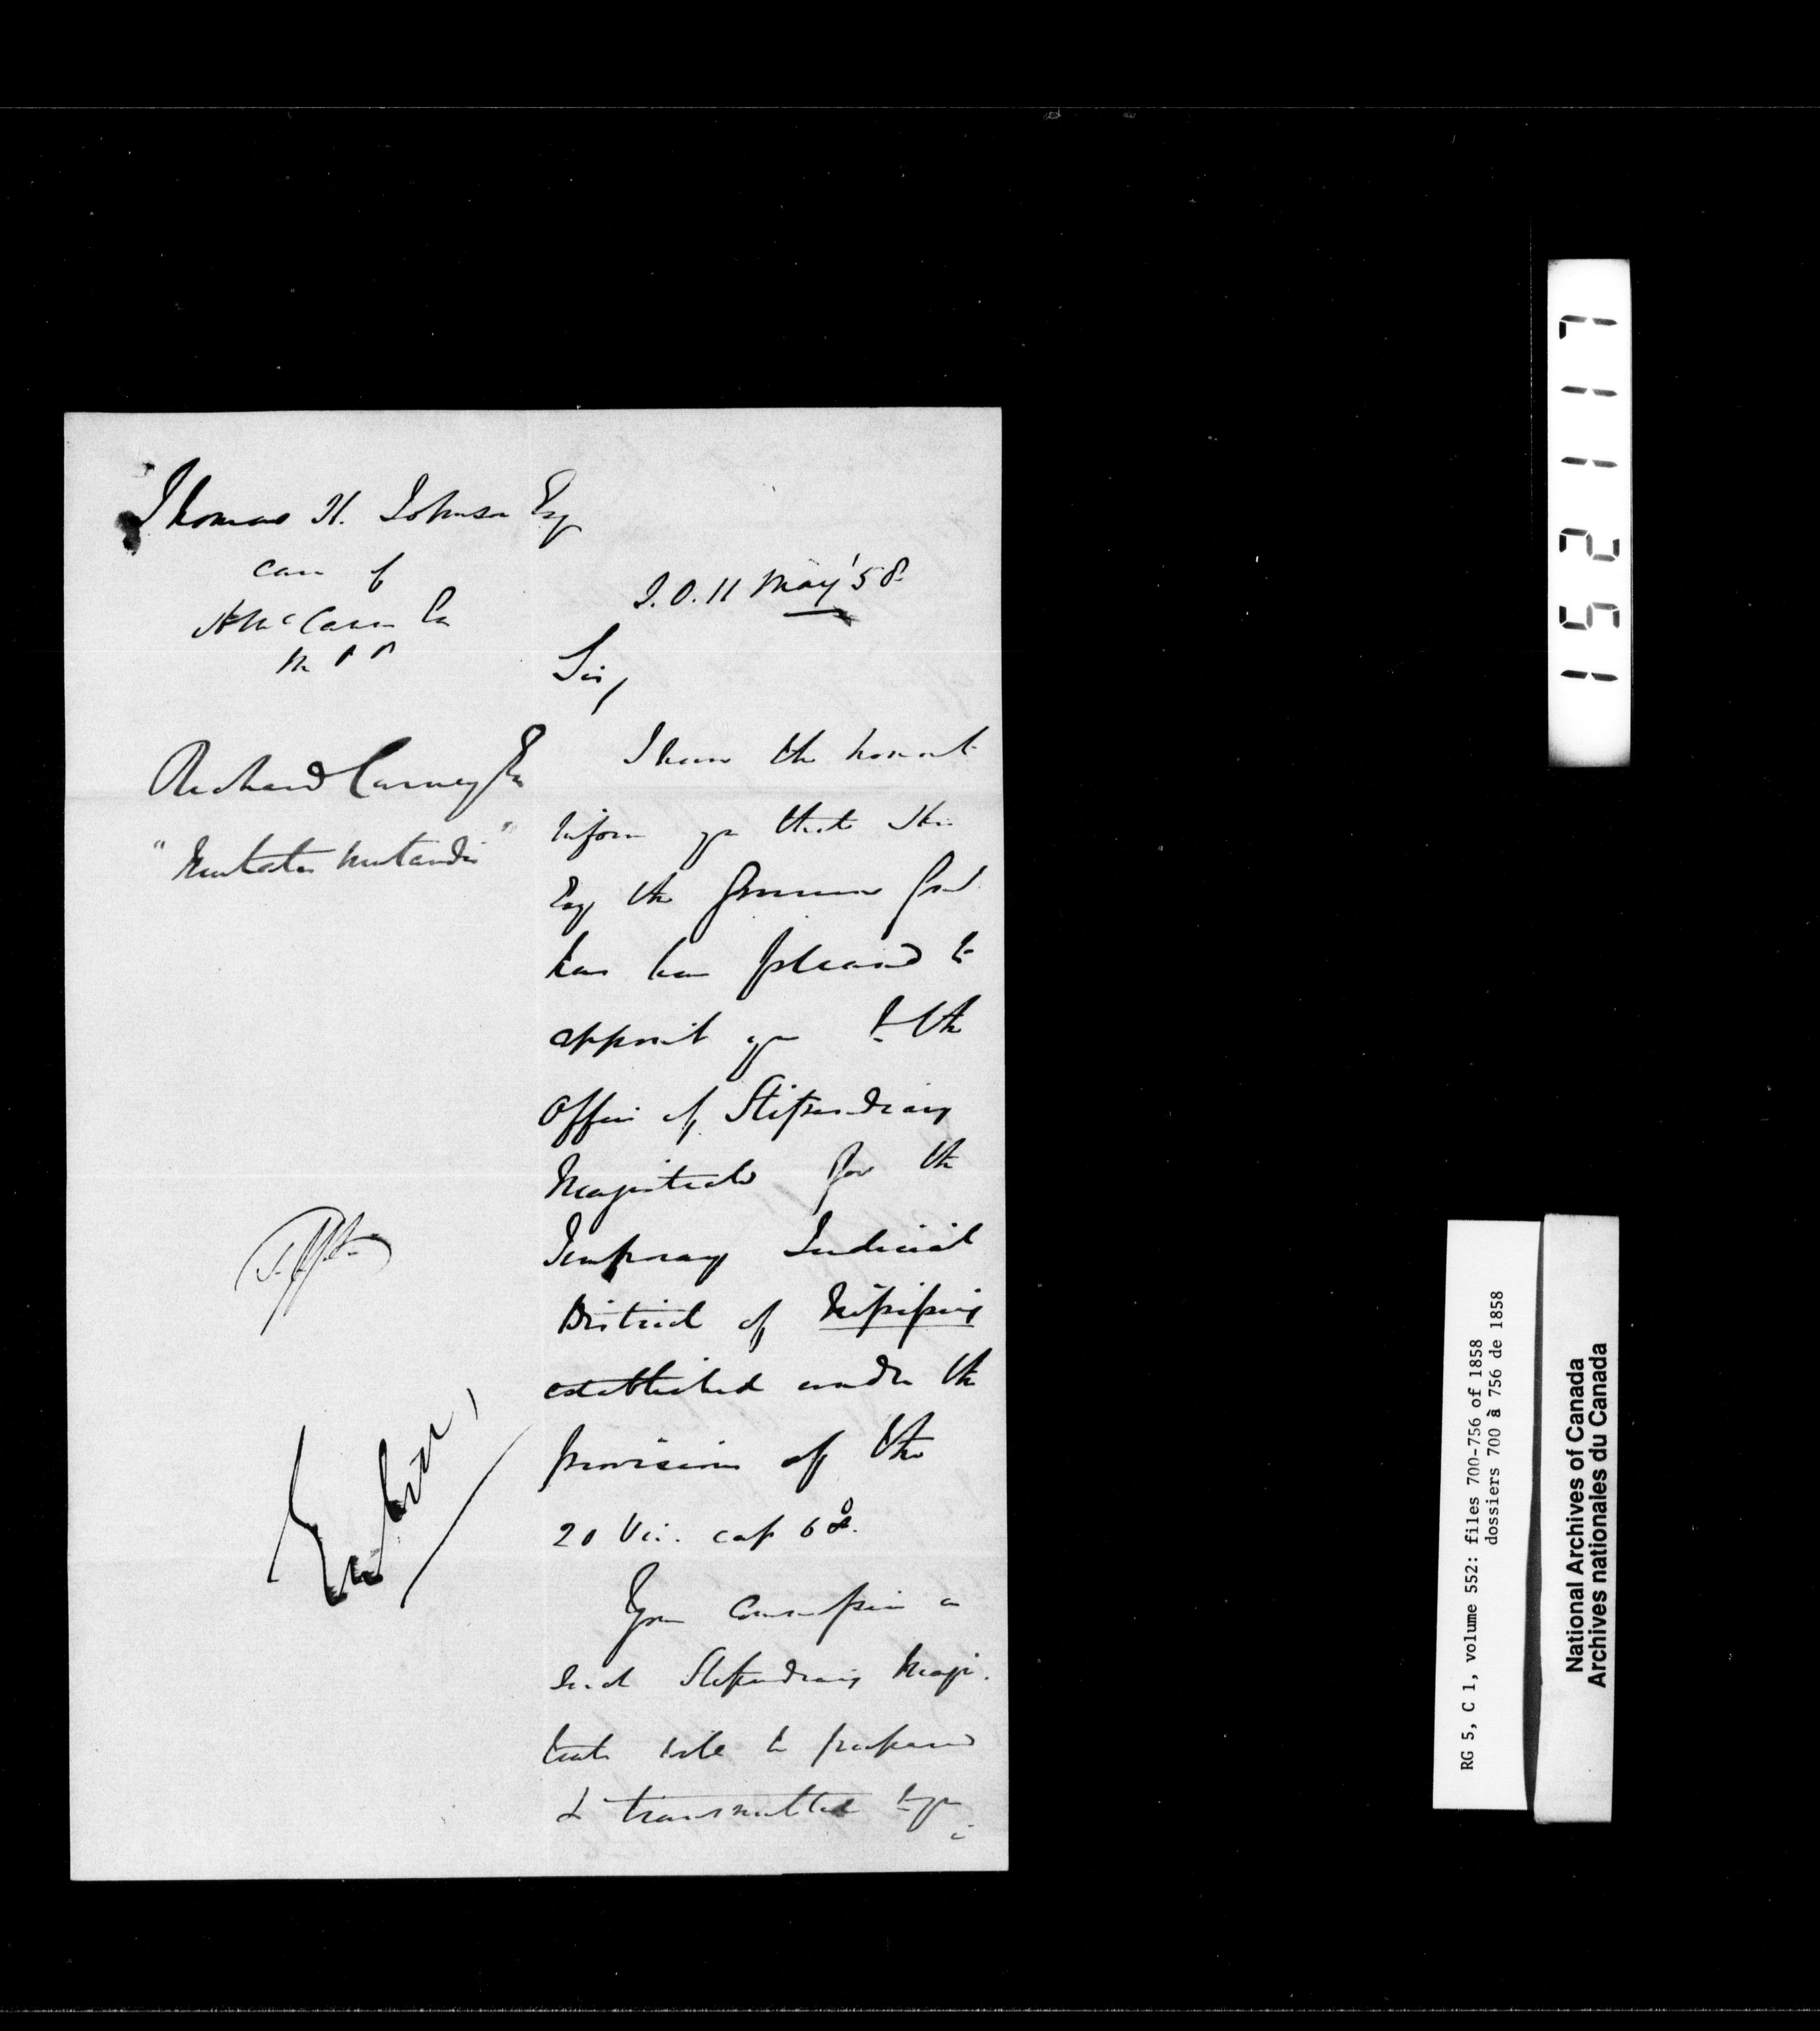 Thomas H. Johnson Esq
care of
McCann Esq
M P P
S.O. 11 May '58
Sir,
Richard Carney Esq
"Mutatis mutandis"
I have the honor to
inform you that His
Exy the Governor Genl
has been pleased to
appoint you to the
Office of Stipendiary
Magistrate for the
Temporary Judicial
District of Nipissing
established under the
provisions of the
20 Vic. cap 60.
Your Commission as
such Stipendiary Magis-
trate will be prepared
& transmitted to you
152117
RG 5, C 1, volume 552: files 700-756 of 1858
dossiers 700 à 756 de 1858
National Archives of Canada
Archives nationales du Canada